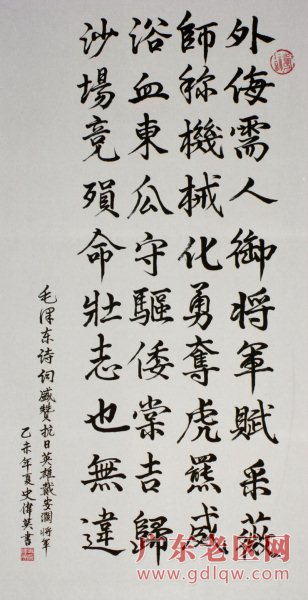 外侮需人御将軍賦采薇
師称機械化勇奪虎羆威
浴血東瓜守驅倭棠吉歸
沙場竟殞命壯志也無違
毛泽东诗词盛赞抗日英雄戴安澜将军
乙未年夏史偉英書
广东老区网
www.gdlqw.com